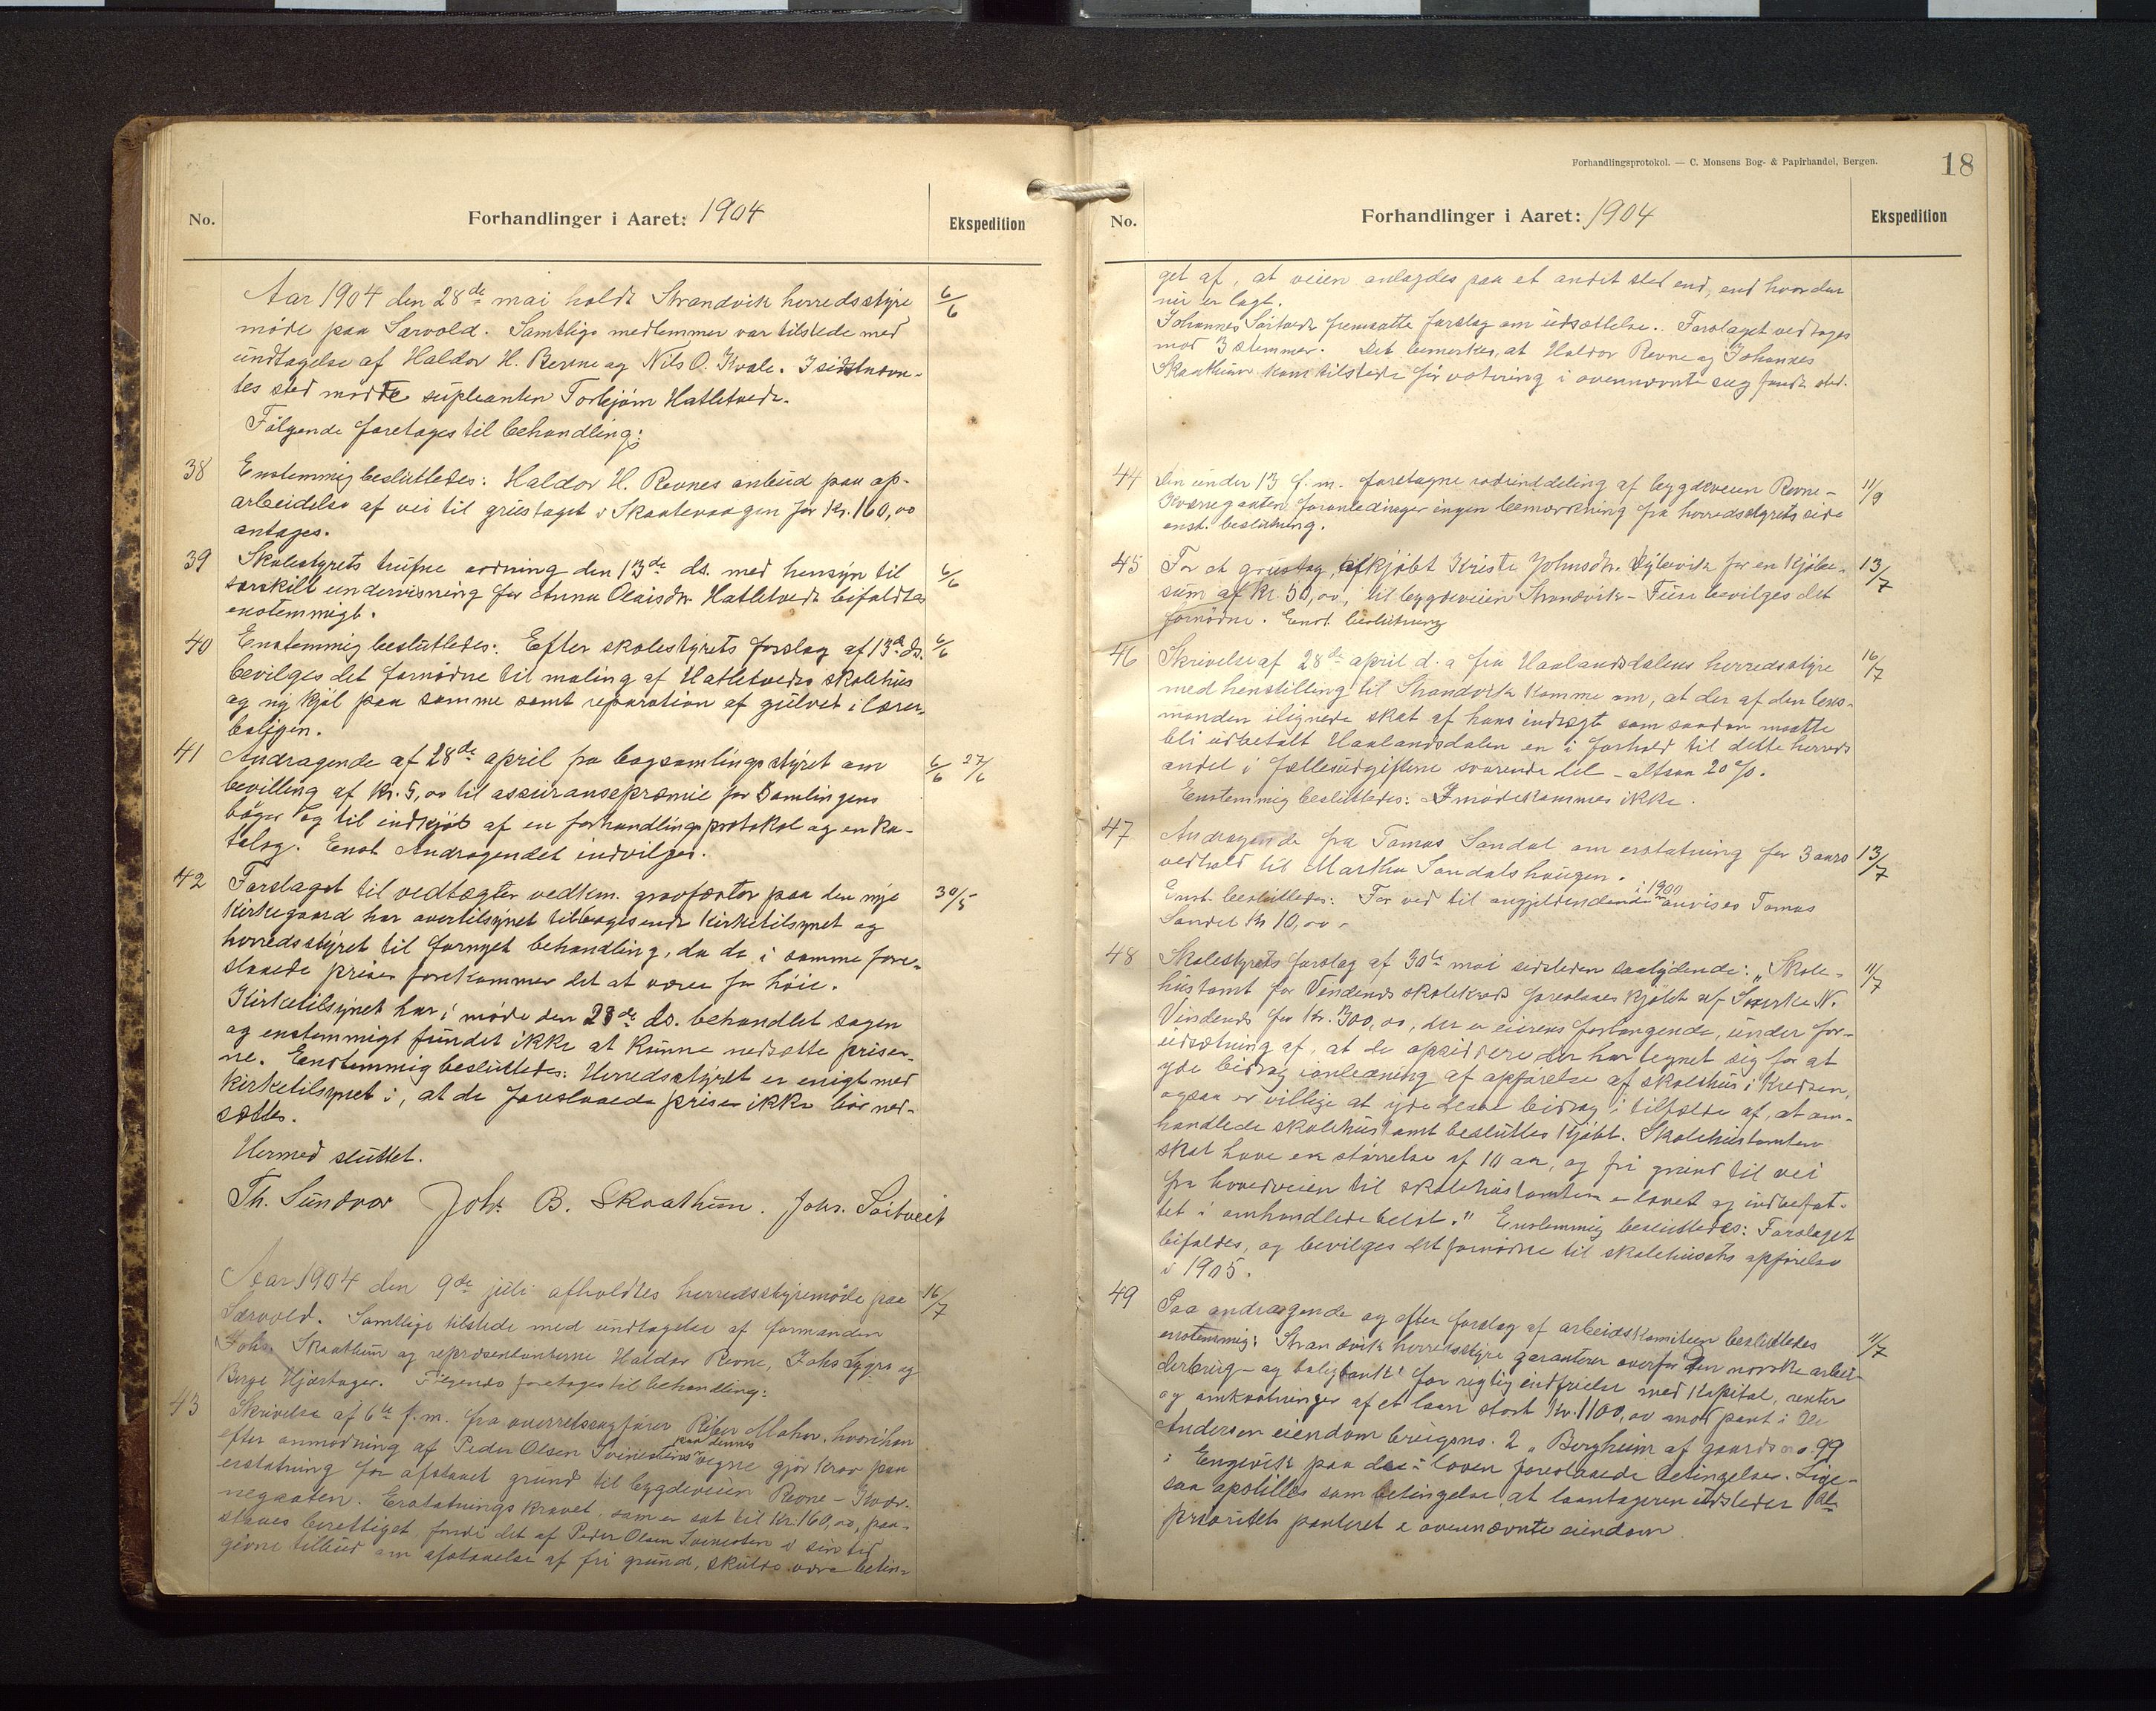 No.
Forhandlinger i Aaret: 1904
Ekspedition
Aar 1904 den 28de mai holdt Strandvik herredsstyre 6/6
møde paa Særvold. Samtlige medlemmer var tilstede med
undtagelse af Haldor H. Revne og Nils O. Kvale. I sidstnævn-
tes sted mødte supleanten Torbjørn Hatletvedt.
Følgende foretages til behandling:
38 Enstemmig besluttedes: Haldor H. Revnes anbud paa op-
arbeidelse af vei til grustaget i Skaatevaagen for Kr. 160,00
antages.
39 Skolestyrets trufne ordning den 13de ds. med hensyn til 6/6
særskilt undervisning for Anna Olaisdtr Hatletvedt bifaldtes
enstemmigt.
40 Enstemmig besluttedes: Efter skolestyrets forslag af 13de ds. 6/6
bevilges det fornødne til maling af Hatletvedts skolehus
og ny kjøl paa samme samt reparation af gulvet i lærer-
boligen.
41 Andragende af 28de april fra bogsamlingsstyret om 6/6 27/6
bevilling af kr. 5,00 til assuransepræmie for Samlingens
bøger og til indkjøb af en forhandlingsprotokol og en ka-
talog. Enst Andragendet indvilges.
42 Forslaget til vedtægter vedkm. gravfæster paa den nye 30/5
Kirkegaard har overtilsynet tilbagesendt Kirketilsynet og
herredsstyret til fornyet behandling, da de i samme fore-
slaaede priser forekommer det at være for høie.
Kirketilsynet har i møde den 28de ds. behandlet sagen
og enstemmigt fundet ikke at kunne nedsætte priser-
ne. Enstemmig besluttedes: Herredsstyret er enigt med
kirketilsynet i, at de foreslaaede priser ikke bør ned-
sættes.
Hermed sluttet.
Th. Sundvor Johs. B. Skaathun. Johs. Søitveit
Aar 1904 den 9de juli afholdtes herredsstyremøde paa 16/7
Særvold. Samtlige tilstede med undtagelse af formanden
Johs. Skaathun og repræsentanterne Haldor Revne, Johs Lygre og
Børge Hjartager. Følgende foretages til behandling:
43 Skrivelse af 6te f.m. fra overretssagfører Mohn, hvori han
efter anmodning af Peder Olsen paa dennes vegne gjør krav paa
erstatning for afstaaet grund til bygdeveien Revne - Kvær-
negaten. Erstatningskravet, som er sat til Kr. 160,00, paa-
staaes berettiget, fordi det af Peder Olsen i sin tid
givne tilbud om afstaaelse af fri grund, skulde være betin-
Forhandlingsprotokol. — C. Monsens Bog- & Papirhandel, Bergen.
18
No.
Forhandlinger i Aaret: 1904
Ekspedition
get af, at veien anlagdes paa et andet sted end, end hvor den
nu er lagt.
Johannes Søitvedt fremsatte forslag om udsættelse. Forslaget vedtoges
mod 3 stemmer. Det bemerkes, at Haldor Revne og Johannes
Skaathun kom tilstede før votering i ovennævnte sag fandt sted.
44 Den under 13 f.m. foretagne rodeinddeling af bygdeveien Revne - 11/9
Kværnegaten foranlediger ingen bemærkning fra herredsstyrets side
enst. beslutning.
45 For et grustag, afkjøbt Kristi Johnsdtr. for en kjøbe- 13/7
sum af kr. 50,00, til bygdeveien Strandvik - Fuse bevilges det
fornødne. Enst. beslutning
46 Skrivelse af 28de april d.a fra Haalandsdalens herredsstyre 16/7
med henstilling til Strandvik komme om, at der af den lens-
manden ilignede skat af hans indtægt som saadan maatte
bli udbetalt Haalandsdalen en i forhold til dette herreds
andel i fællesudgifterne svarende del - altsaa 20%.
Enstemmig besluttedes: Imødekommes ikke.
47 Andragende fra Tomas Sandal om erstatning for 3 aars 13/7
vedhold til Martha Sandalshaugen.
Enst. besluttedes: For ved til angjeldendende i 1900 anvises Tomas
Sandal kr 10,00.
48 Skolestyrets forslag af 30te mai sidstleden saalydende: "Skole- 11/7
hustomt for Vindenes skolekreds foreslaaes kjøbt af Sjurke N.
Vindenes for kr. 300,00, der er eierens forlangende, under for-
udsætning af, at de opsiddere der har tegnet sig for at
yde bidrag i anledning af opførelse af skolehus i kredsen,
ogsaa er villige at yde disse bidrag i tilfælde af, at om-
handlede skolehustomt besluttes kjøbt. Skolehustomten
skal have en størrelse af 10 ar, og fri grund til vei
fra hovedveien til skolehustomten er lovet og indbefat-
tet i omhandlede beløb." Enstemmig besluttedes: Forslaget
bifaldes, og bevilges det fornødne til skolehusets opførelse
i 1905.
49 Paa andragende og efter forslag af arbeidskomiteen besluttedes 11/7
enstemmig: Strandvik herredsstyre garanterer overfor den norske arbei-
derbrug- og boligbank for rigtig indfrielse med kapital, renter
og omkostninger af et laan stort Kr. 1100,00 mod pant i
Andersen eiendom brugsno. 2 "Bergheim af gaards no. 99
i Engevik paa de i loven foreslaaede betingelser. Lige-
saa opstilles som betingelse, at laantageren udsteder 2de
prioritets panteret i ovennævnte eiendom.